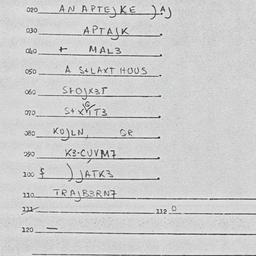 020 AN APTEJKE ) AJ
030 APTAJK
040 + MAL3
050 A S+LAXT HOUS
060 S+OJX3T
070 S+X
080 KOJLN, OR
090 K3-CUVM7
100 £ ) JATK3
110 TRAJB3RN7
111 112 O
120 —